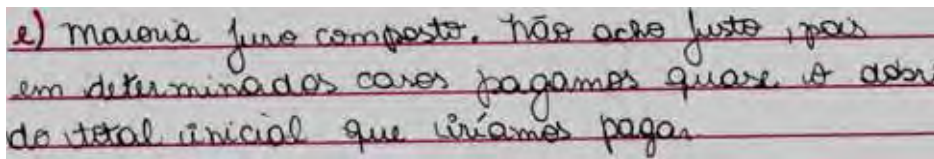 e) maioria juro composto. não acho justo, pois
em determinados casos pagamos quase o dobr
do total inicial que iríamos pagar